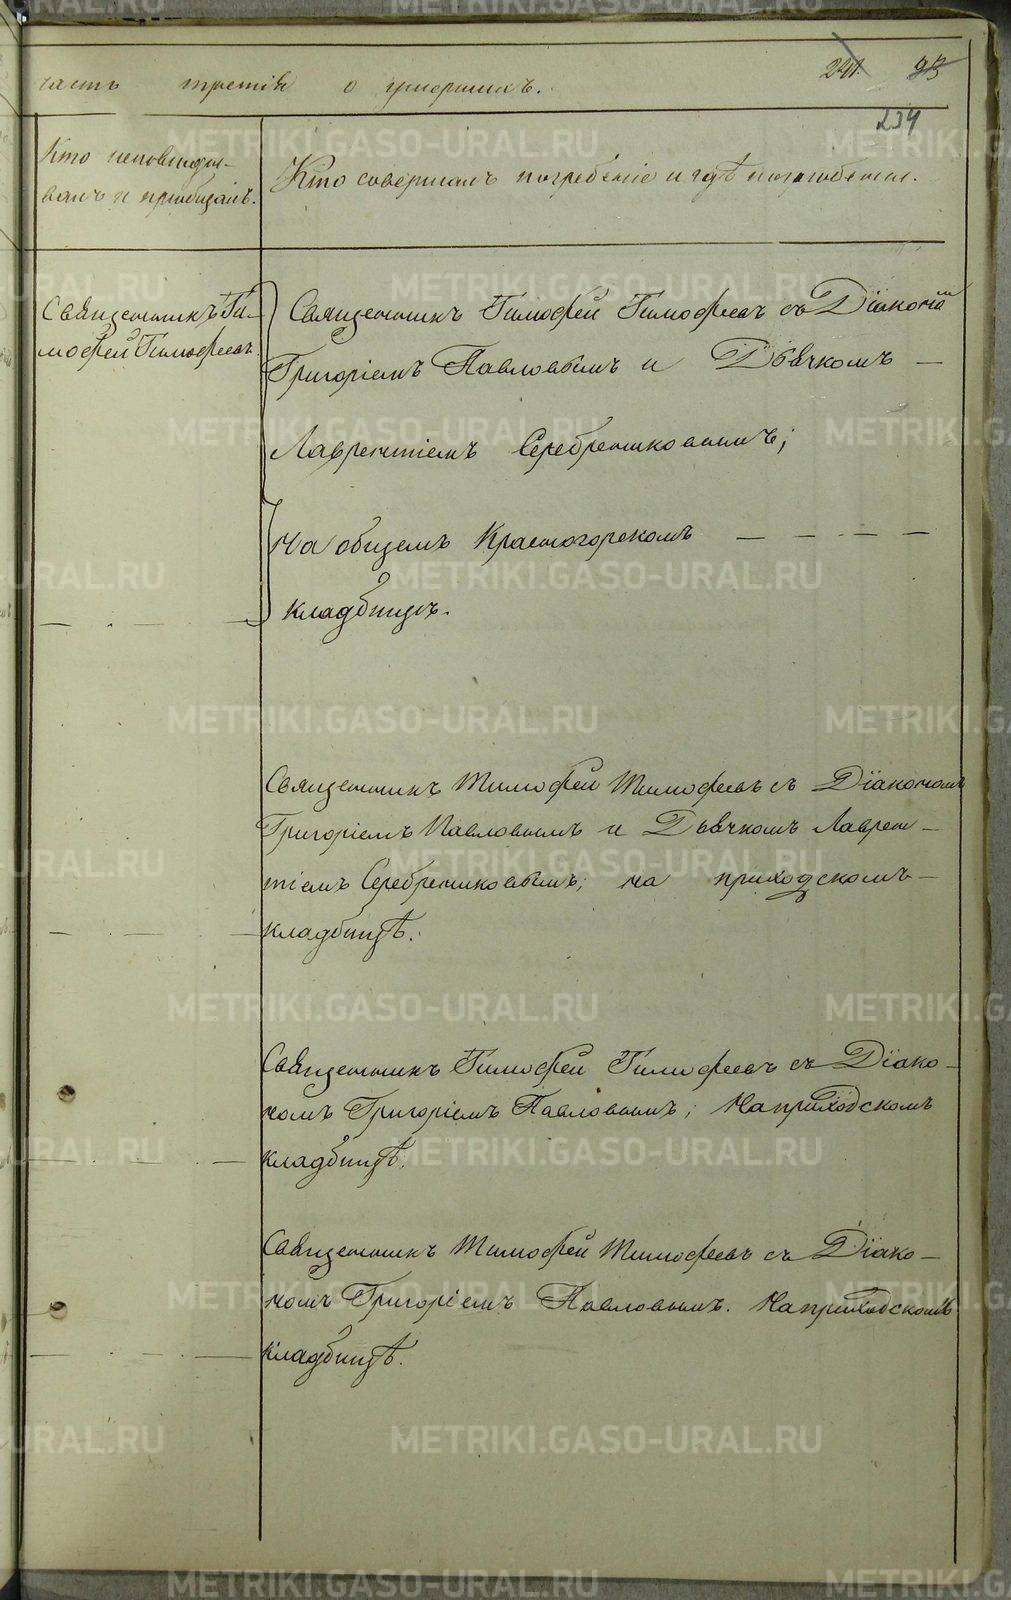 часть третія о умершихъ.
241. 93
234
Кто исповѣды-
валъ и пріобщалъ.
Кто совершалъ погребеніе и гдѣ погребены.
Священникъ Ти-
мофей Тимофеевъ.
Священникъ Тимофей Тимофеевъ съ Діакономъ
Григоріемъ Павловымъ и Дьячкомъ —
Лаврентіемъ Серебрениковымъ;
на общемъ Красногорскомъ — — — —
кладбищѣ.
Священникъ Тимофей Тимофеевъ съ Діакономъ
Григоріемъ Павловымъ и Дьячкомъ Лаврен—
тіемъ Серебрениковымъ; на приходскомъ—
кладбищѣ.
Священникъ Тимофей Тимофеевъ съ Діако—
номъ Григоріемъ Павловымъ; На приходскомъ
кладбищѣ.
Священникъ Тимофей Тимофеевъ съ Діако—
номъ Григоріемъ Павловымъ. На приходскомъ
кладбищѣ.
METRIKI.GASO-URAL.RU